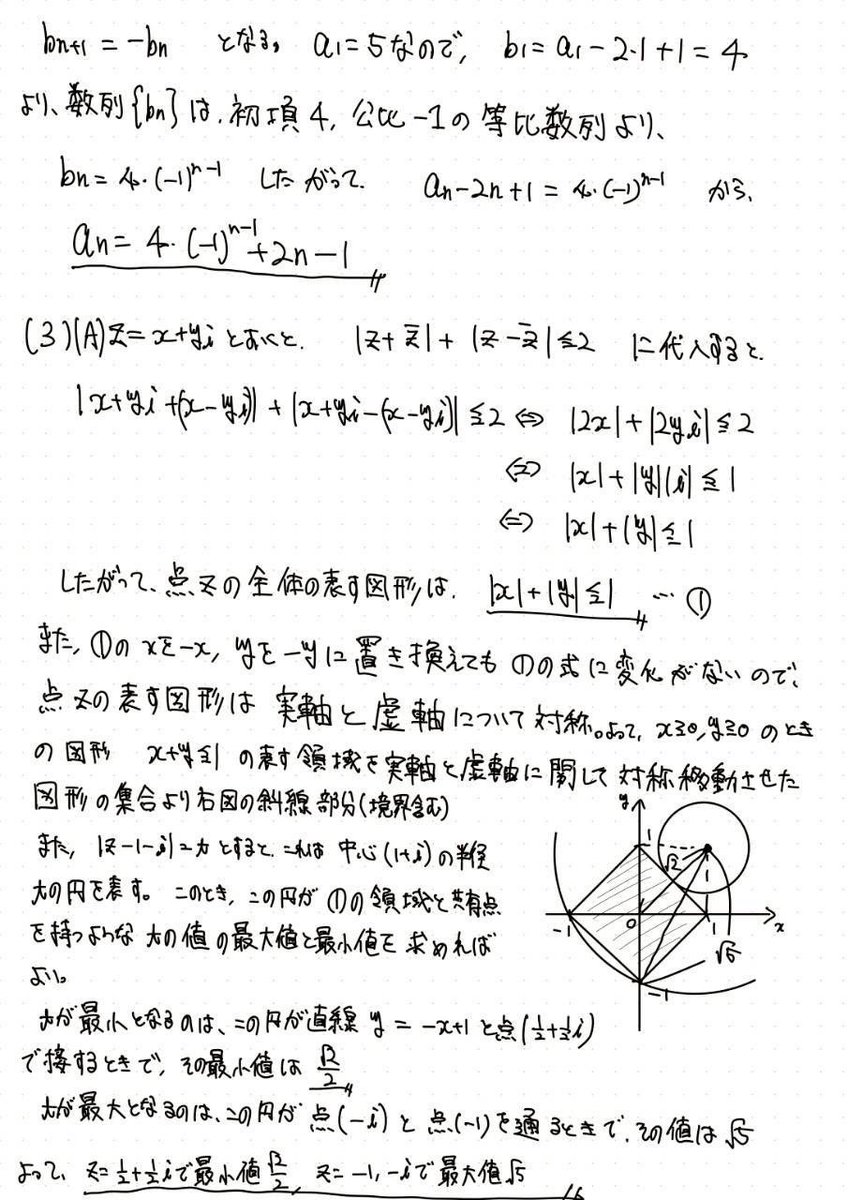 bn+1 = -bn となる。 a1=5なので, b1=a1-2・1+1=4
より、数列{bn}は、初項4, 公比-1の等比数列より、
bn=4・(-1)^{n-1} したがって. an-2n+1=4・(-1)^{n-1} から、
an=4・(-1)^{n-1}+2n-1
(3)(A) z=x+yi とおくと. |z+z̄|+|z-z̄|≦2 に代入すると.
|x+yi+(x-yi)|+|x+yi-(x-yi)|≦2 ⇔ |2x|+|2yi|≦2
⇔ |x|+|y||i|≦1
⇔ |x|+|y|≦1
したがって、点zの全体の表す図形は. |x|+|y|≦1 … ①
また, ①のxを-x, yを-yに置き換えても①の式に変化がないので、
点zの表す図形は実軸と虚軸について対称。よって, x≧0, y≧0のとき
の図形 x+y≦1 の表す領域を実軸と虚軸に関して対称移動させた
図形の集合より右図の斜線部分(境界含む)
また, |z-1-i|=tとすると, これは中心(1+i)の半径
tの円を表す。このとき, この円が①の領域と共有点
を持つような tの値の最大値と最小値を求めれば
よい。
y
1
√2
-1
0
1
x
√5
-1
tが最小となるのは、この円が直線 y=-x+1と点(1/2+1/2i)
で接するときで, その最小値は √2/2
tが最大となるのは、この円が点(-i)と点(-1)を通るときで、その値は√5
よって、z=1/2+1/2iで最小値√2/2, z=-1, -iで最大値√5